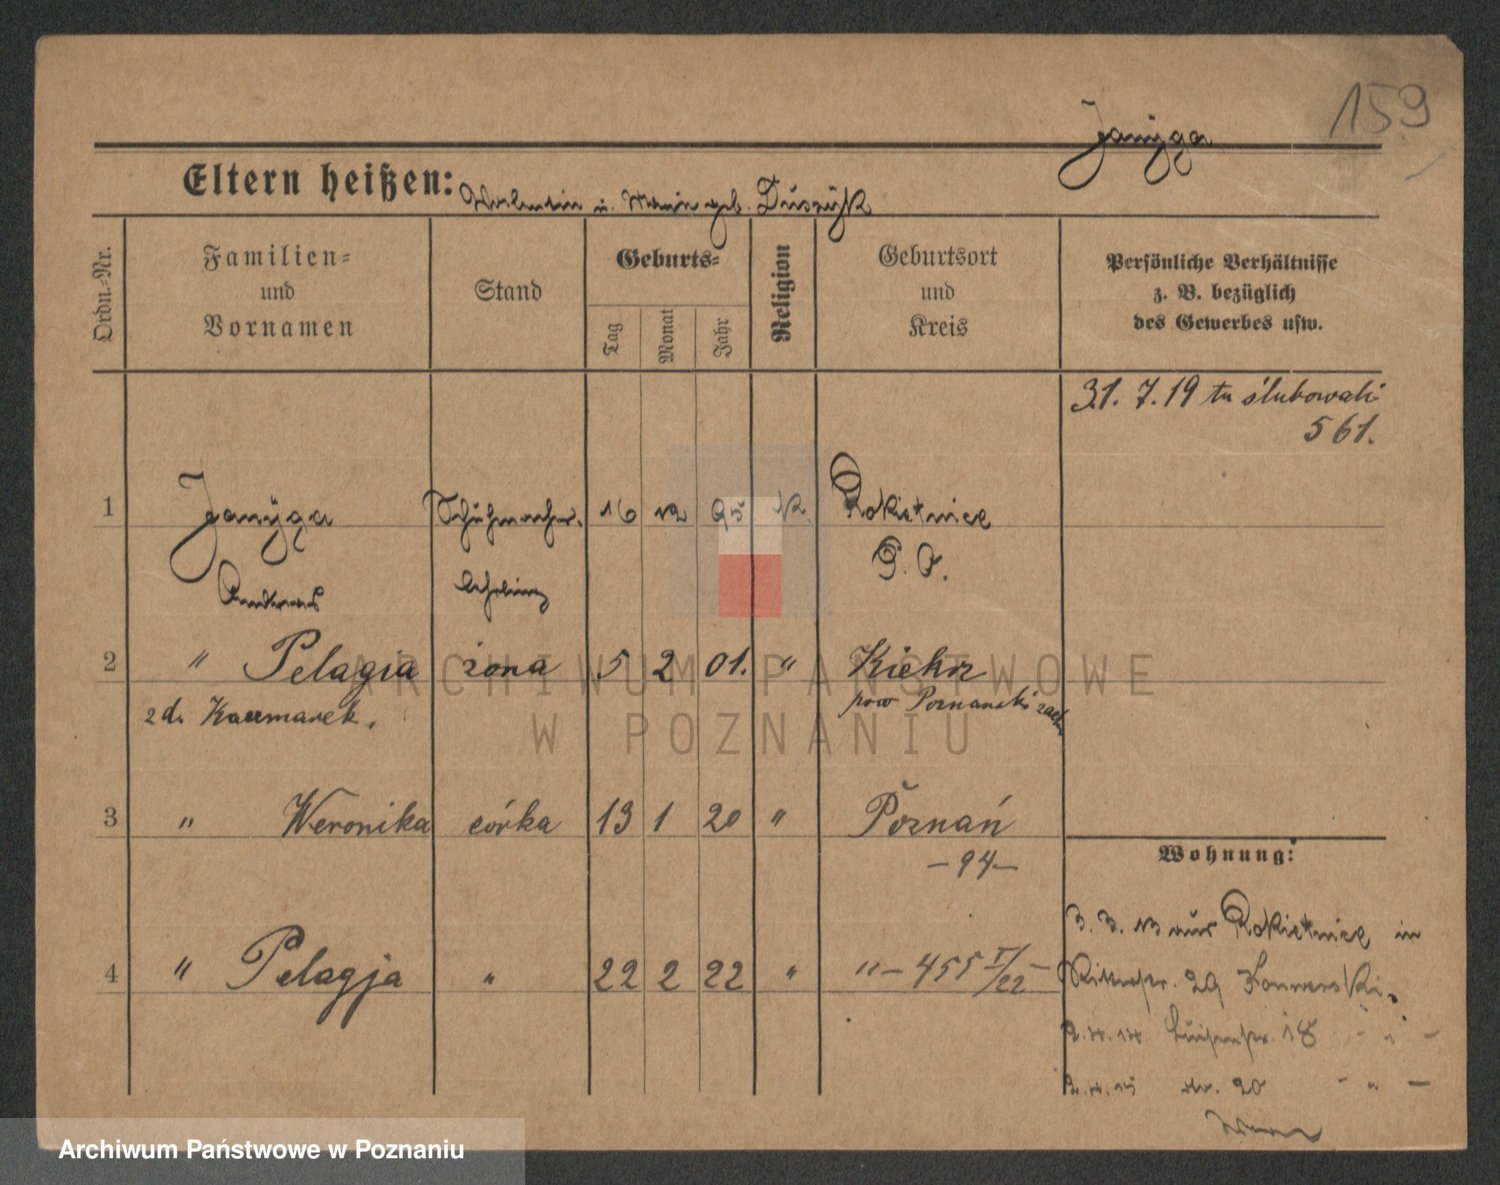 159
Janÿga
Eltern heißen: Valentin u. Marie geb. Duszÿk
Ordn.-Nr.
Familien- und Vornamen
Stand
Geburts-
Tag
Monat
Jahr
Religion
Geburtsort und Kreis
Persönliche Verhältnisse
z. B. bezüglich
des Gewerbes usw.
31. 7. 19 tu ślubowali
561.
1 Janÿga Schuhmacher- 16 12 95 K. Rokietnice
Andreas lehrling P. O.
2 " Pelagia żona 5 2 01. " Kiekrz
z d. Kaczmarek. pow Poznański zach
3 " Weronika córka 13 1 20 " Poznań
– 94 –
Wohnung:
3. 3. 13 aus Rokietnice in
4 " Pelagja " 22 2 22 " " – 455 I/22 –
Ritterstr. 29
2.4.14 Luisenstr. 18 " –
20 " –
ARCHIWUM PAŃSTWOWE
W POZNANIU
Archiwum Państwowe w Poznaniu